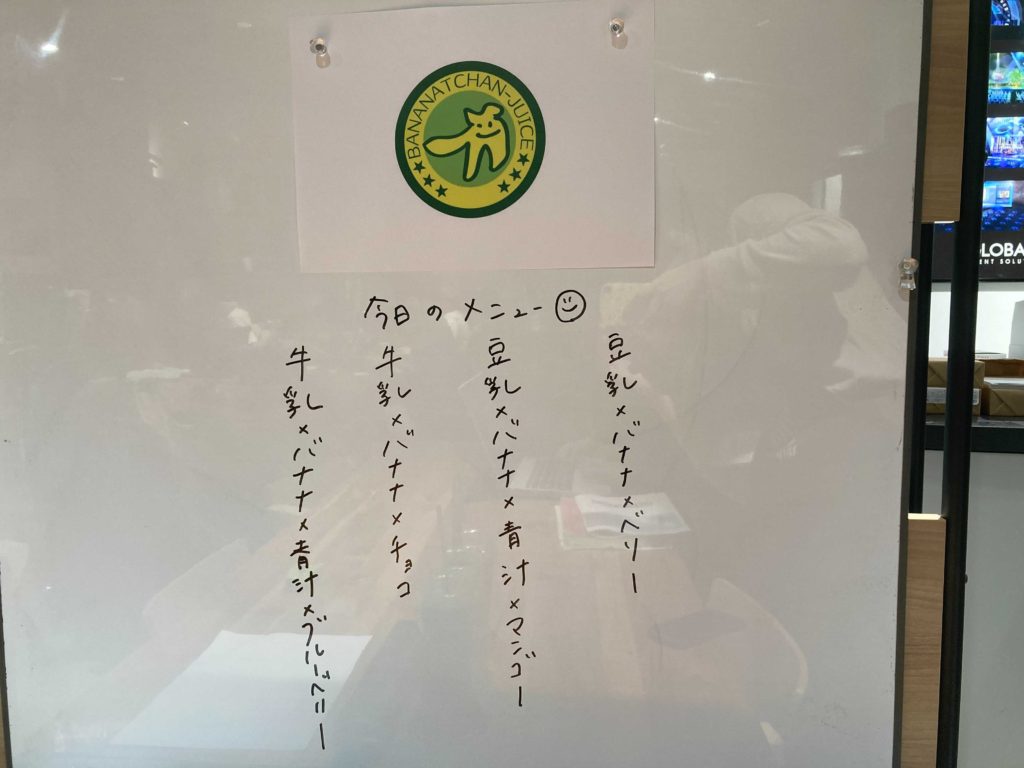 BANANATCHAN-JUICE
今日のメニュー
豆乳×バナナ×ベリー
豆乳×バナナ×青汁×マンゴー
牛乳×バナナ×チョコ
牛乳×バナナ×青汁×ブルーベリー
GLOBA
ENT SOLU